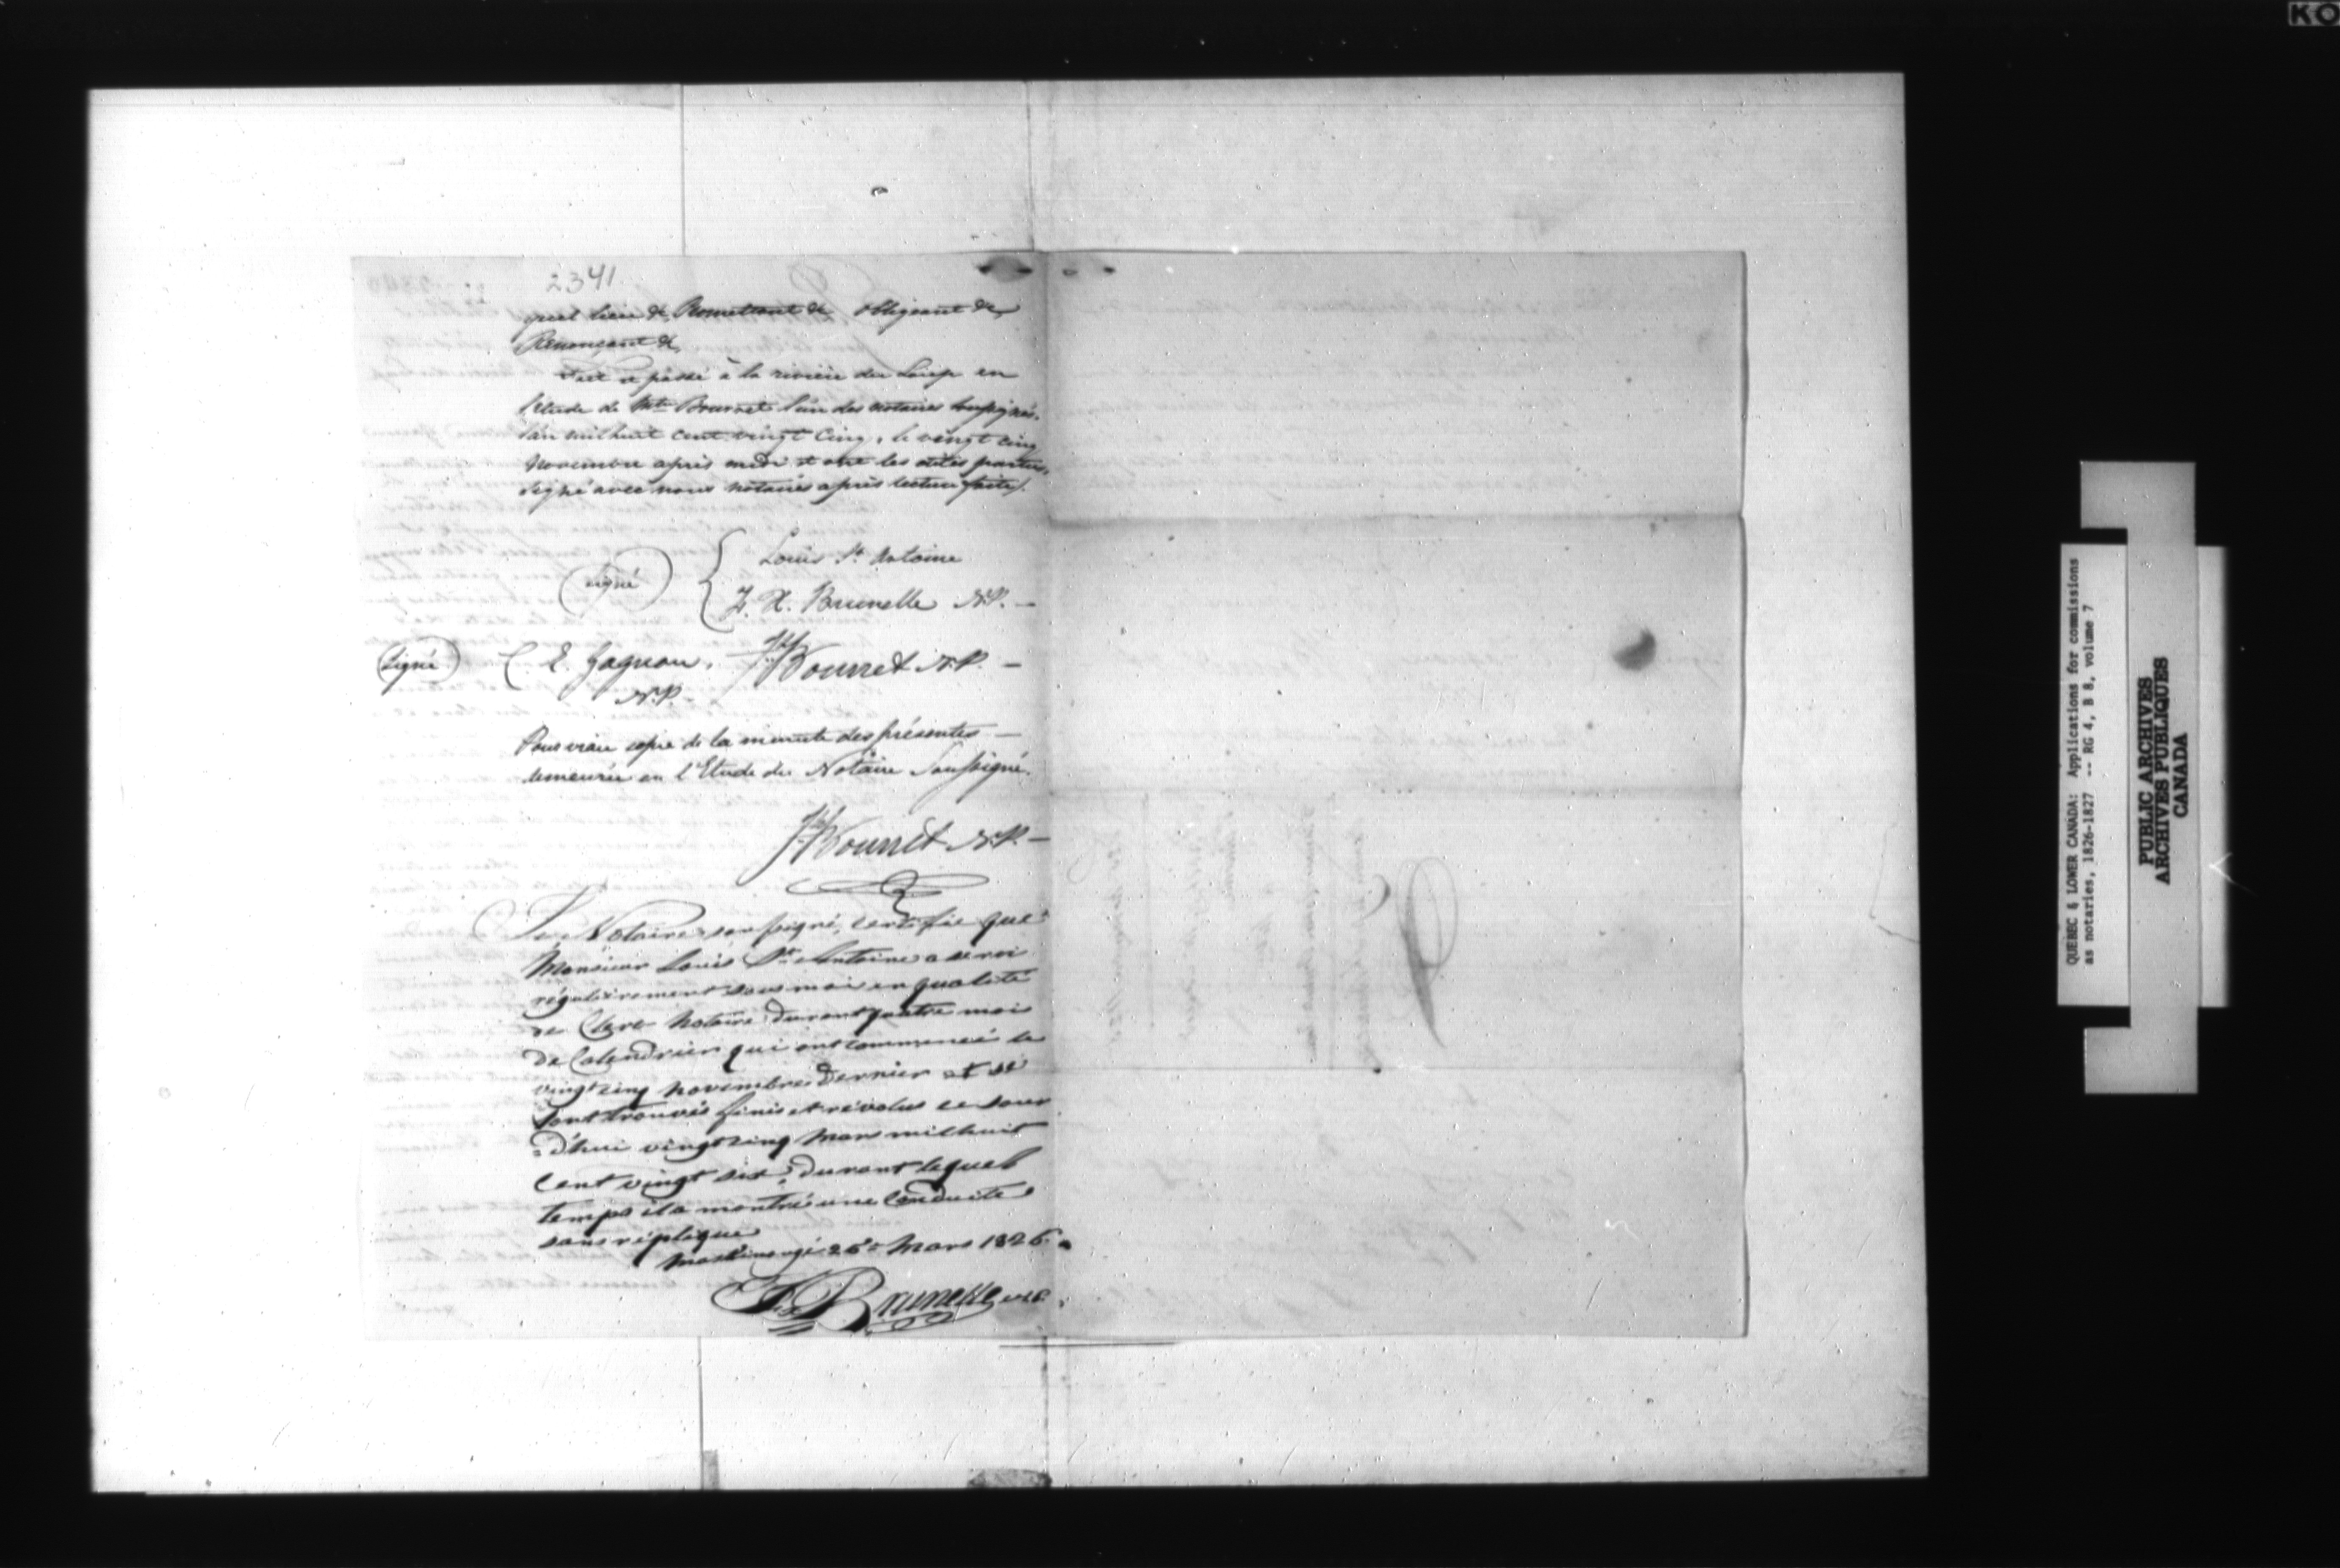 2341
quel lieu &c. Promettant &c. obligeant &c.
Renonçant &c.
Fait et passé à la rivière du Loup en
l'étude de Mtre Bourret l'un des notaires soussignés,
l'an mil huit cent vingt cinq, le vingt cinq
Novembre après midi et ont les dites parties,
signé avec nous notaires après lecture faite.
signé
Louis St Antoine
F. X. Brunelle N.P.
signé
E. Gagnon. Bourret N.P.
N.P.
Pour vraie copie de la minute des présentes
demeurée en l'Etude du Notaire Soussigné.
Bourret N.P.
Notaire soussigné, certifie que
Monsieur Louis St Antoine a servi
régulièrement sous moi en qualité
de Clerc Notaire durant quatre mois
de Calendrier qui ont commencé le
vingt cinq novembre dernier et se
sont trouvés finis et révolus ce jour
d'hui vingt cinq Mars mil huit
cent vingt six, durant lequel
temps il a montré une Conduite
sans réplique
Mars 1826.
Brunelle N.P.
QUEBEC & LOWER CANADA: Applications for commissions
as notaries, 1826-1827 -- RG 4, B 8, volume 7
PUBLIC ARCHIVES
ARCHIVES PUBLIQUES
CANADA
KO